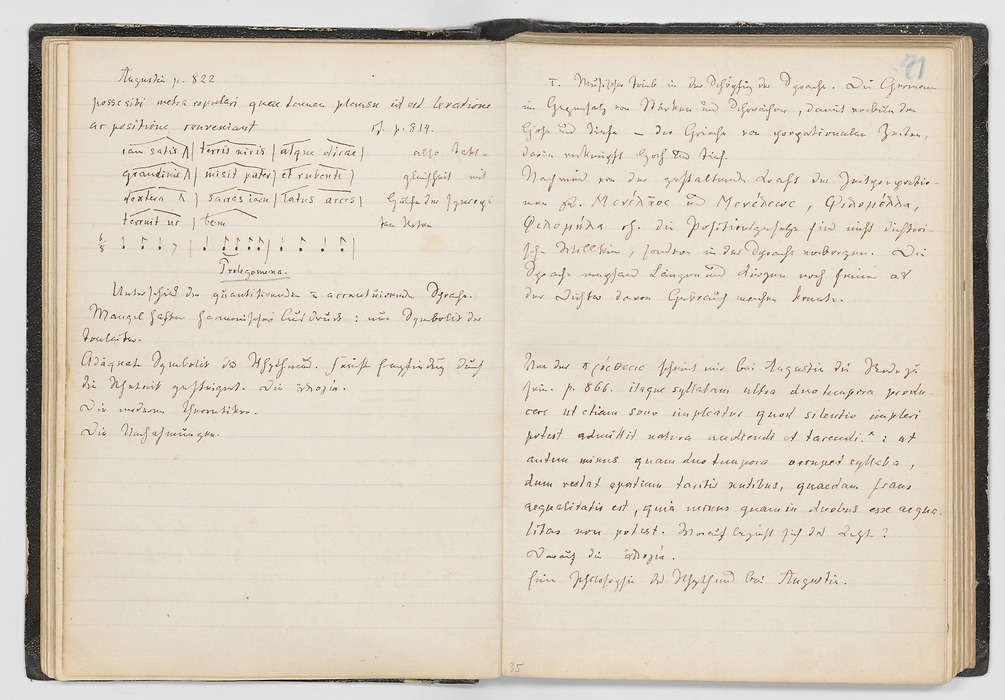 Augustin p. 822
posse sibi metra copulari quae tamen plausu id est levatione
ac positione conveniant cf. p. 814.
iam satis Λ | terris nivis | atque dirae | also Takt-
grandinis Λ | misit pater | et rubente | gleichheit mit
dextera Λ | sacras iacu | latus arces |
terruit ur | bem
6/8
Prolegomena.
Unterschied der quantitirenden u accentuirenden Sprache.
Mangelhafter harmonischer Ausdruck: nur Symbolik der
Tonleiter.
Adäquate Symbolik des Rhythmus. Feinste Empfindung durch
die Rhetorik gesteigert. Die ἀλογία.
Die modernen Theoretiker.
Die Nachahmungen.
91
I. Musischer Trieb in der Schöpfung der Sprache. Die Germanen
im Gegensatz von Starken und Schwachen, damit verbunden
Hohe und Tiefe — der Grieche von proportionalen Zeiten,
darin verknüpft Hoch und Tief.
Nachweis von der gestaltenden Kraft der Zeitproportio-
nen Μενέλλαος und Μενέλεως, Φιλομέλλα,
Φιλομήλα cf. die Positionsgesetze sind nicht dichteri-
sche Willkür, sondern in der Sprache verborgen. Die
Sprache empfand Längen und Kürzen noch feiner als
der Dichter davon Gebrauch machen konnte.
Von der πρόσθεσις scheint mir bei Augustin die Rede zu
sein. p. 866. itaque syllabam ultra duo tempora produ-
cere ut etiam sono impleatur quod silentio impleri
potest admittit natura audiendi et tacendi.* : ut
autem minus quam duo tempora occupet syllaba,
dum restat spatium tacitis nutibus, quaedam fraus
aequalitatis est, quia minus quam in duobus esse aequa-
litas non potest. Worauf bezieht sich das Letzte?
Darauf die ἀλογία.
Eine Philosophie des Rhythmus bei Augustin.
35